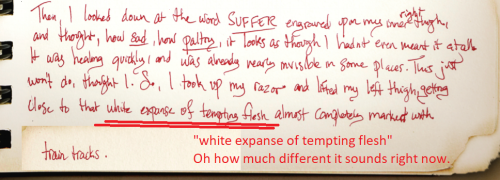 Then I looked down at the word SUFFER engraved upon my inner right thigh,
and thought, how sad, how paltry, it looks as though I hadn't even meant it at all.
It was healing quickly, and was already nearly invisible in some places. This just
won't do, thought I. So, I took up my razor and lifted my left thigh, getting
close to that white expanse of tempting flesh almost completely marked with
train tracks.
"white expanse of tempting flesh"
Oh how much different it sounds right now.